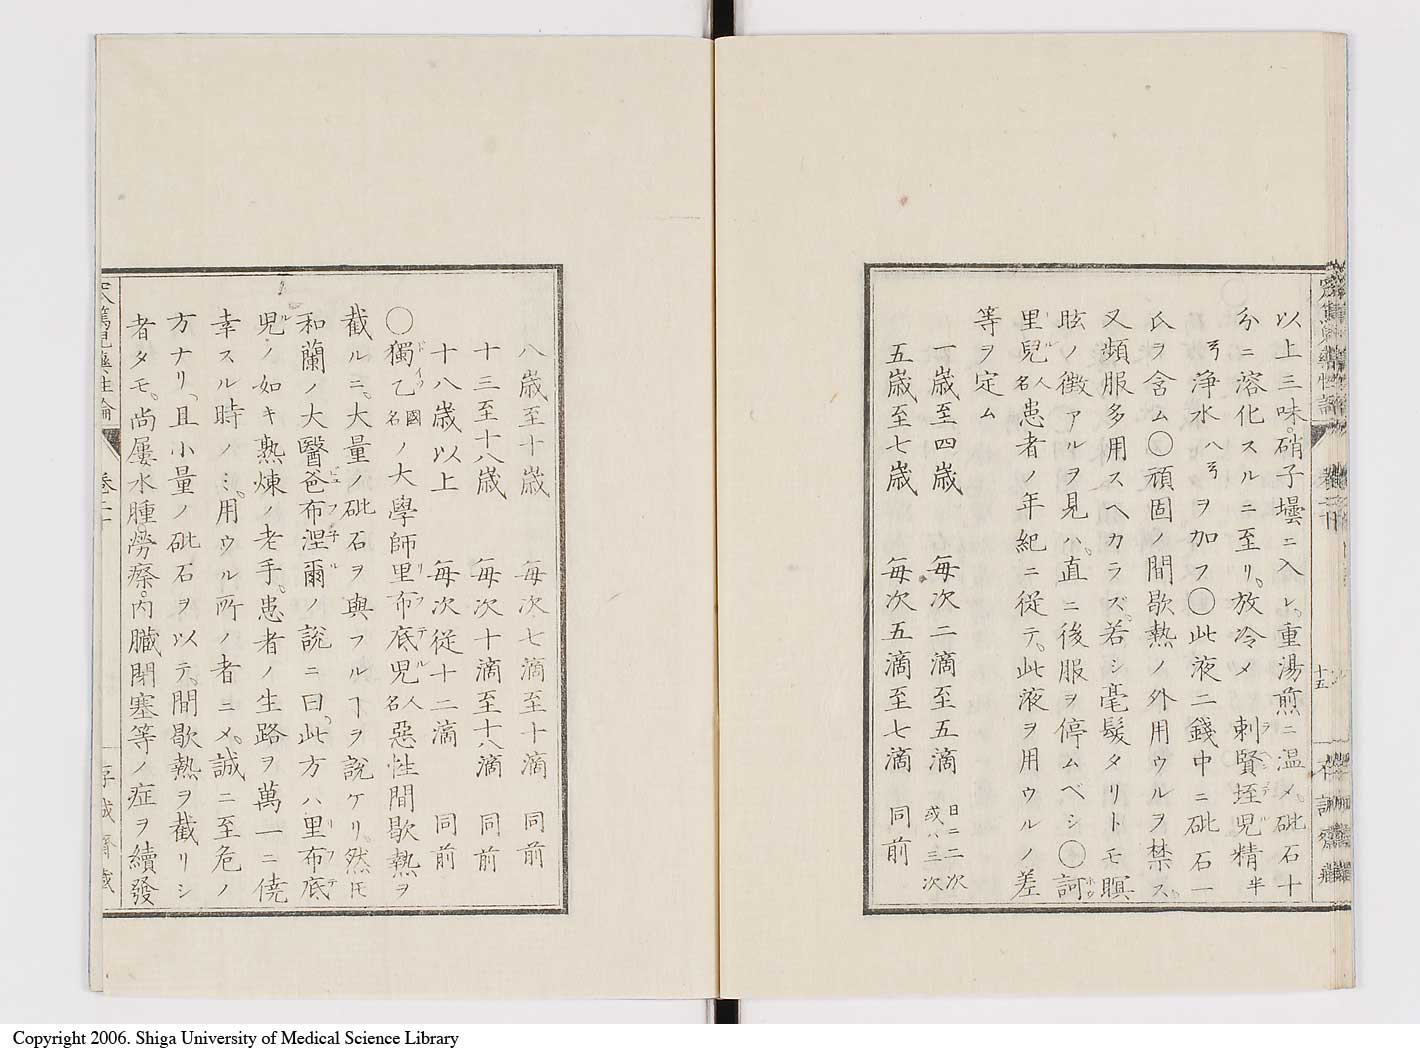 以上三味硝子壜ニ入レ重湯煎ニ温メ砒石十
分ニ溶化スルニ至リ放冷メ 剌賢垤児精半
弓浄水ハ弓ヲ加フ〇此液二錢中ニ砒石一
氏ヲ含ム〇頑固ノ間歇熱ノ外用ウルヲ禁ス
又頻服多用スヘカラズ若シ毫髮タリトモ瞑
眩ノ徴アルヲ見ハ直ニ後服ヲ停ムベシ〇訶
里兒人名患者ノ年紀ニ従テ此液ヲ用ウルノ差
等ヲ定ム
一歳至四歳 毎次二滴至五滴 日ニ二次或ハ三次
五歳至七歳 毎次五滴至七滴 同前
十五
八歳至十歳 毎次七滴至十滴 同前
十三至十八歳 毎次十滴至十八滴 同前
十八歳以上 毎次従十二滴 同前
〇獨乙國名ノ大學師里布底児人名惡性間歇熱ヲ
截ルニ大量ノ砒石ヲ與フルヿヲ説ケリ然𪜈
和蘭ノ大醫爸布涅爾ノ説ニ曰此方ハ里布底
兒ノ如キ熟煉ノ老手患者ノ生路ヲ萬一ニ僥
幸スル時ノミ用ウル所ノ者ニメ誠ニ至危ノ
方ナリ且小量ノ砒石ヲ以テ間歇熱ヲ截リシ
者タモ尚屢水腫勞瘵内臓閉塞等ノ症ヲ續發
Copyright 2006. Shiga University of Medical Science Library